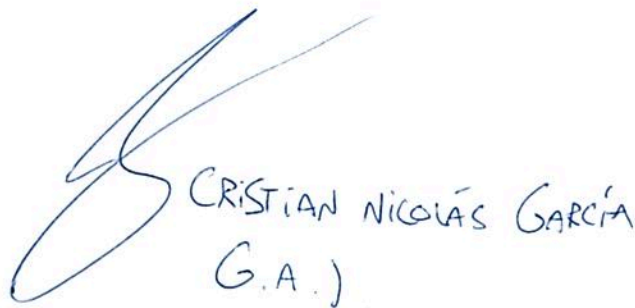 CRISTIAN NICOLÁS GARCÍA
G.A.)